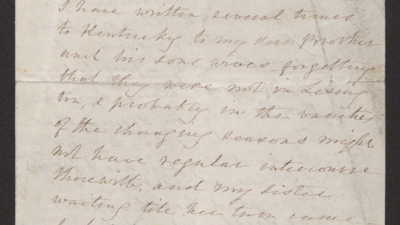 I have written several times
to Kentucky to my Brother
and his sons wives forgetting
that they were not in Lexing
ton, & probably in the vanities
of the changing seasons might
not have regular intercourse
therewith, and my sister
waiting till her turn came